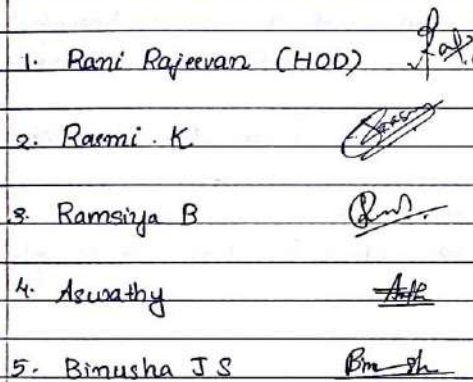 1. Rani Rajeevan (HOD)
2. Rasmi . K
3. Ramsiya B
4. Aswathy
5. Binusha J S